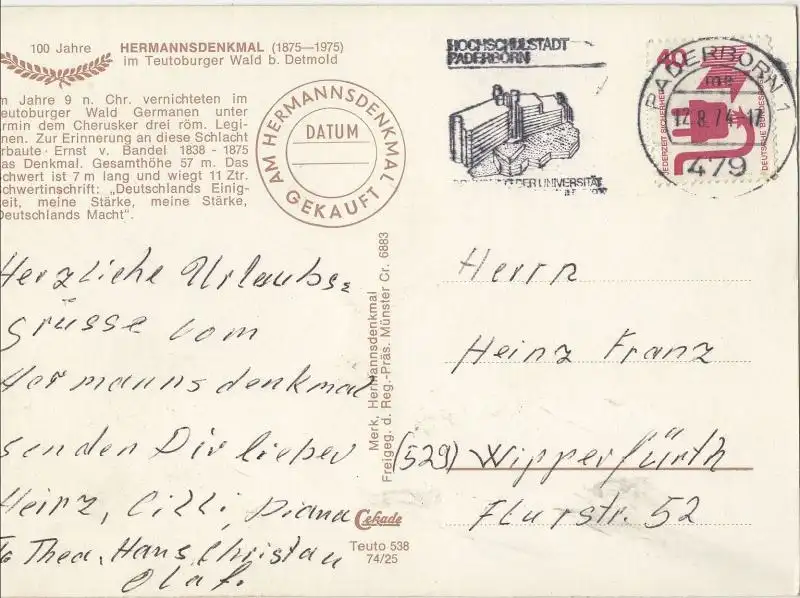 100 Jahre HERMANNSDENKMAL (1875—1975)
im Teutoburger Wald b. Detmold
m Jahre 9 n. Chr. vernichteten im
eutoburger Wald Germanen unter
rmin dem Cherusker drei röm. Legi-
nen. Zur Erinnerung an diese Schlacht
rbaute · Ernst v. Bandel 1838 - 1875
as Denkmal. Gesamthöhe 57 m. Das
chwert ist 7 m lang und wiegt 11 Ztr.
chwertinschrift: „Deutschlands Einig-
eit, meine Stärke, meine Stärke,
Deutschlands Macht".
AM HERMANNSDENKMAL
DATUM
GEKAUFT
HOCHSCHULSTADT
PADERBORN
DER UNIVERSITÄT
40
JEDERZEIT SICHERHEIT
DEUTSCHE BUNDES
PADERBORN 1
me
17.8.74-17
479
Herzliche Urlaubs=
grüsse vom
Hermannsdenkmal
senden Dir lieber
Heinz, Cilli, Diana
Thea, Hans Christan
Olaf.
Merk, Hermannsdenkmal
Freigeg. d. Reg.-Präs. Münster Cr. 6883
Cekade
Teuto 538
74/25
Herrn
Heinz Franz
(529) Wipperfürth
Flurstr. 52